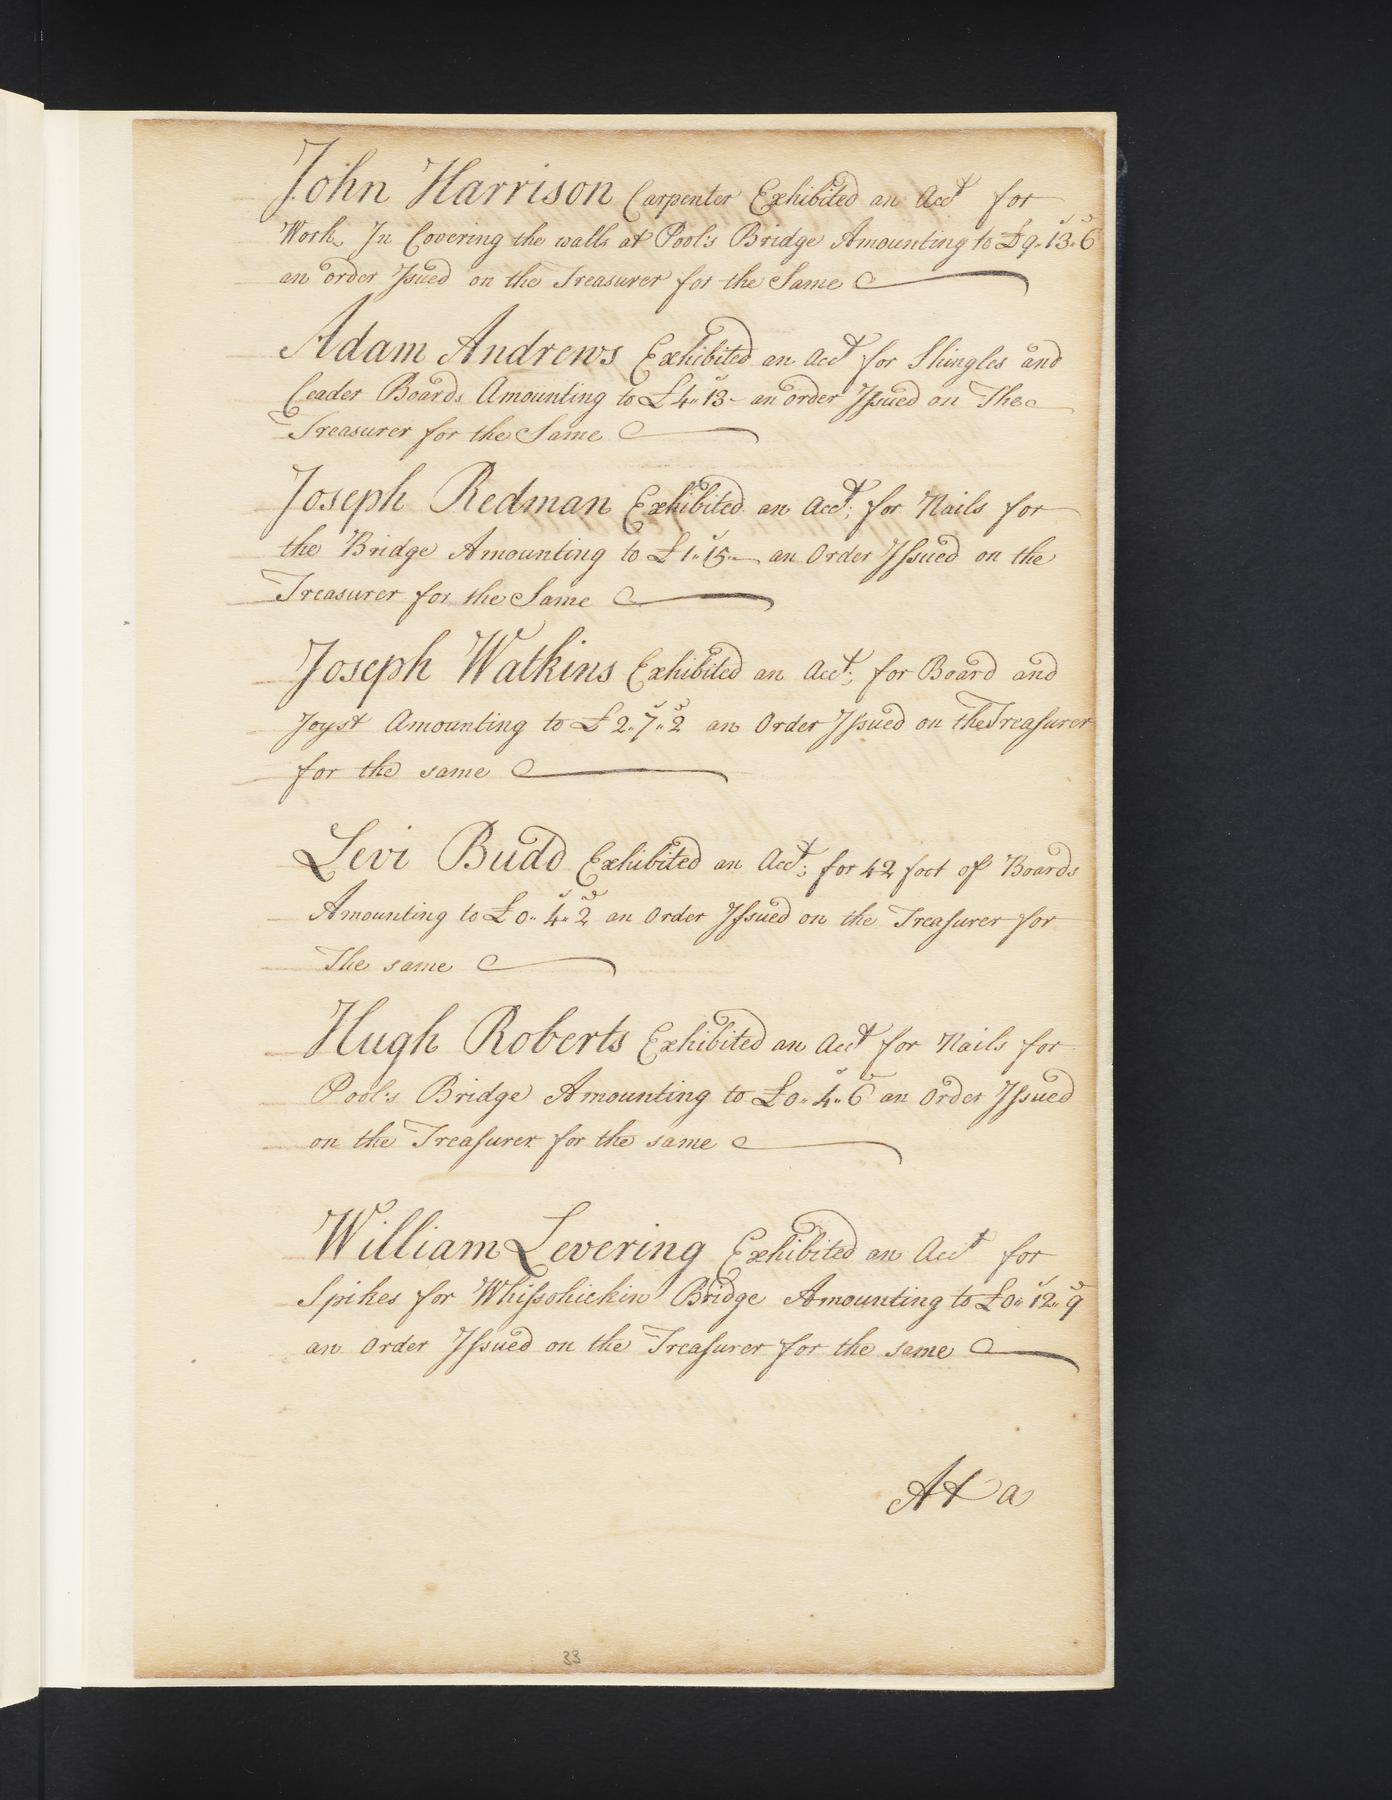 John Harrison Carpenter Exhibited an Acct for
Work In Covering the walls at Pool's Bridge Amounting to £9..13..6
an order Isued on the Treasurer for the Same
Adam Andrews Exhibited an Acct for Shingles and
Ceader Boards Amounting to £4..13- an order Issued on The
Treasurer for the Same
Joseph Redman Exhibited an Acct; for Nails for
the Bridge Amounting to £1..15.- an Order Issued on the
Treasurer for the Same
Joseph Watkins Exhibited an Acct; for Board and
Joyst Amounting to £2..7..2 an Order Issued on the Treasurer
for the same
Levi Budd Exhibited an Acct; for 42 foot of Boards
Amounting to £0..4..2 an Order Issued on the Treasurer for
The same
Hugh Roberts Exhibited an Acct for Nails for
Pool's Bridge Amounting to £0..4..6 an Order Issued
on the Treasurer for the same
William Levering Exhibited an Acct for
Spikes for Whissohickin Bridge Amounting to £0..12..9
an Order Issued on the Treasurer for the same
At a
33